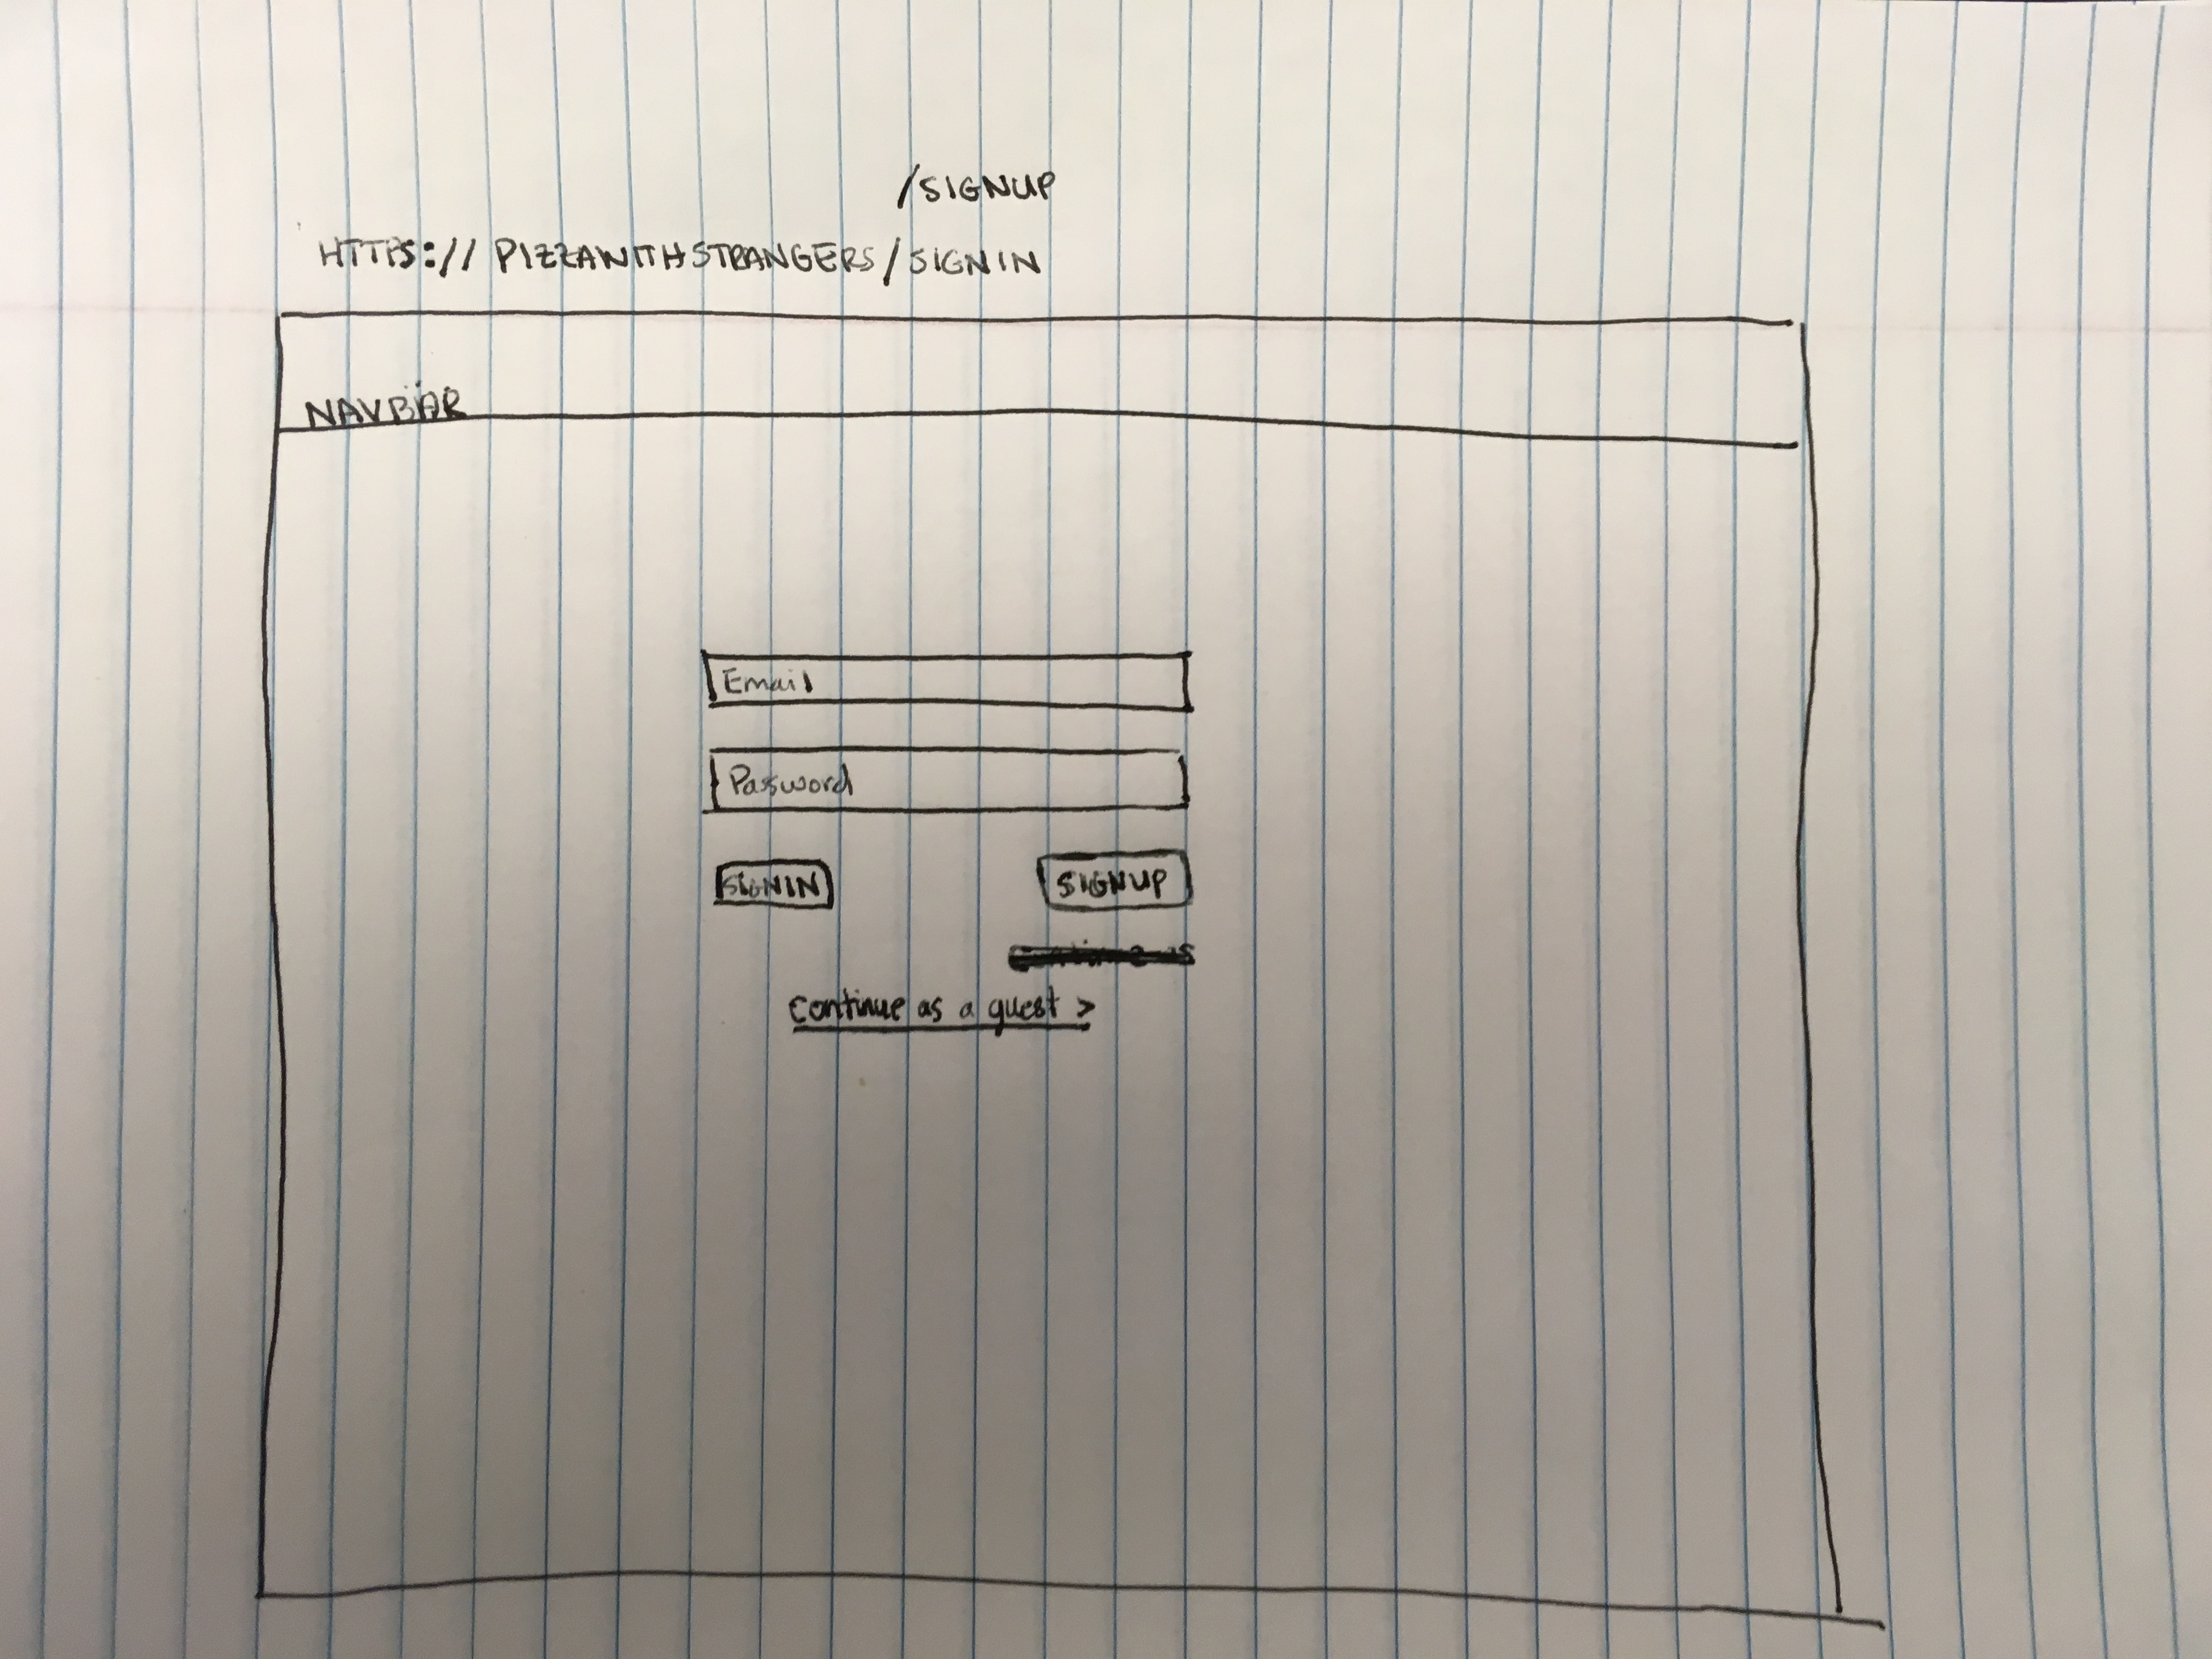 /SIGNUP
HTTPS://PIZZAWITHSTRANGERS/SIGNIN
NAVBAR
Email
Password
SIGNIN SIGNUP
Continue as a guest >